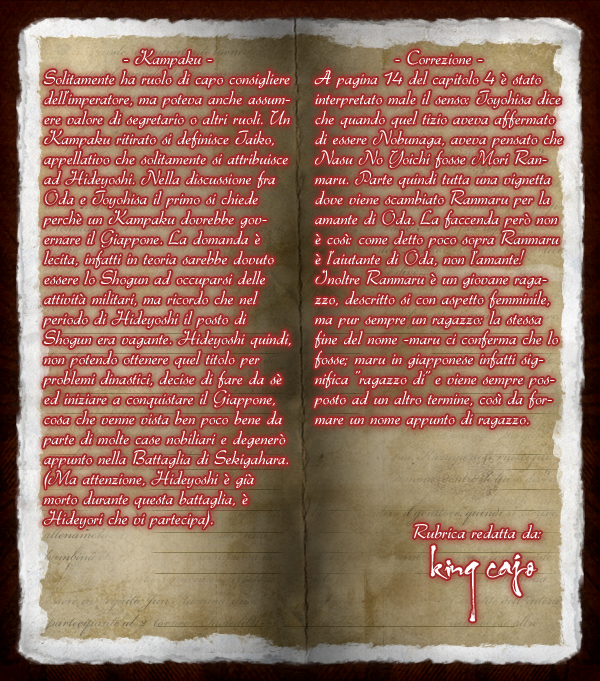 - Kampaku -
Solitamente ha ruolo di capo consigliere
dell'imperatore, ma poteva anche assum-
ere valore di segretario o altri ruoli. Un
Kampaku ritirato si definisce Taiko,
appellativo che solitamente si attribuisce
ad Hideyoshi. Nella discussione fra
Oda e Toyohisa il primo si chiede
perchè un Kampaku dovrebbe gov-
ernare il Giappone. La domanda è
lecita, infatti in teoria sarebbe dovuto
essere lo Shogun ad occuparsi delle
attività militari, ma ricordo che nel
periodo di Hideyoshi il posto di
Shogun era vagante. Hideyoshi quindi,
non potendo ottenere quel titolo per
problemi dinastici, decise di fare da sè
ed iniziare a conquistare il Giappone,
cosa che venne vista ben poco bene da
parte di molte case nobiliari e degenerò
appunto nella Battaglia di Sekigahara.
(Ma attenzione, Hideyoshi è già
morto durante questa battaglia, è
Hideyori che vi partecipa).
- Correzione -
A pagina 14 del capitolo 4 è stato
interpretato male il senso: Toyohisa dice
che quando quel tizio aveva affermato
di essere Nobunaga, aveva pensato che
Nasu No Yoichi fosse Mori Ran-
maru. Parte quindi tutta una vignetta
dove viene scambiato Ranmaru per la
amante di Oda. La faccenda però non
è così: come detto poco sopra Ranmaru
è l'aiutante di Oda, non l'amante!
Inoltre Ranmaru è un giovane raga-
zzo, descritto si con aspetto femminile,
ma pur sempre un ragazzo: la stessa
fine del nome -maru ci conferma che lo
fosse; maru in giapponese infatti sig-
nifica "ragazzo di" e viene sempre pos-
posto ad un altro termine, così da for-
mare un nome appunto di ragazzo.
Rubrica redatta da:
king cajo